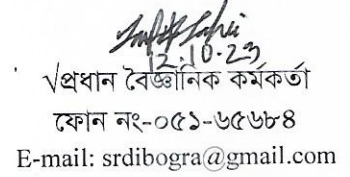 12.10.23
√প্রধান বৈজ্ঞানিক কর্মকর্তা
ফোন নং-০৫১-৬৫৬৮৪
E-mail: srdibogra@gmail.com